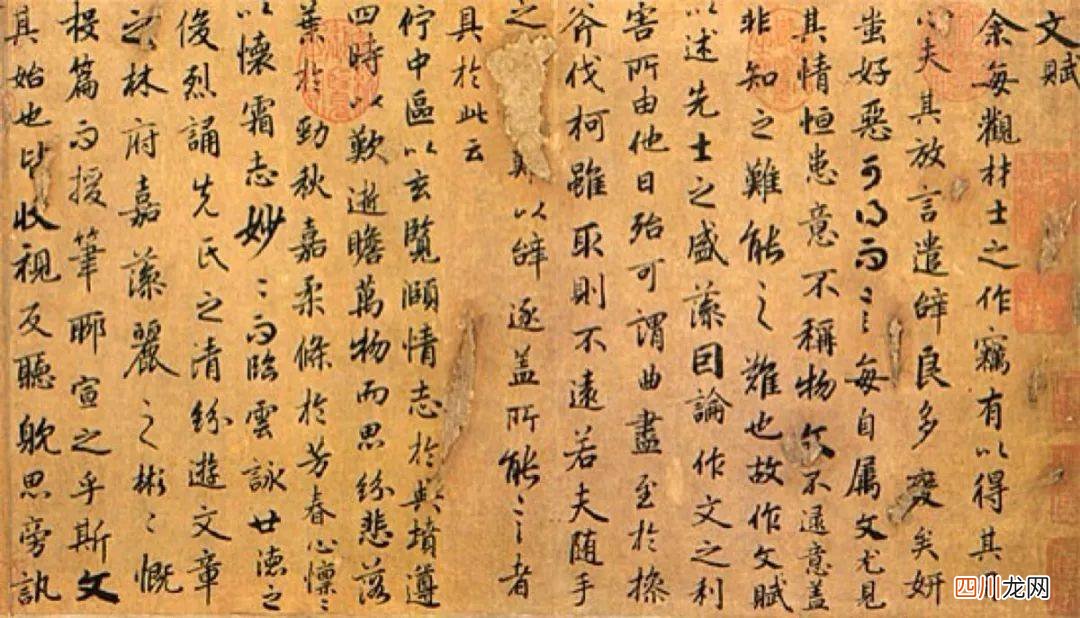 文賦
余每觀材士之作竊有以得其
心夫其放言遣辭良多變矣妍
蚩好惡可得而言每自属文尤見
其情恒患意不稱物文不逮意盖
非知之難能之難也故作文賦
以述先士之盛藻因論作文之利
害所由他日殆可謂曲盡至於操
斧伐柯雖取則不遠若夫随手
之難以辭逐盖所能言者
具於此云
佇中區以玄覽頤情志於典墳遵
四時以歎逝瞻萬物而思紛悲落
葉於勁秋嘉柔條於芳春心懔〻
以懷霜志妙〻而臨雲詠世德之
俊烈誦先氏之清紛遊文章
之林府嘉藻麗之彬〻慨
投篇而援筆聊宣之乎斯文
其始也皆收視反聽躭思旁訊
四川龙网